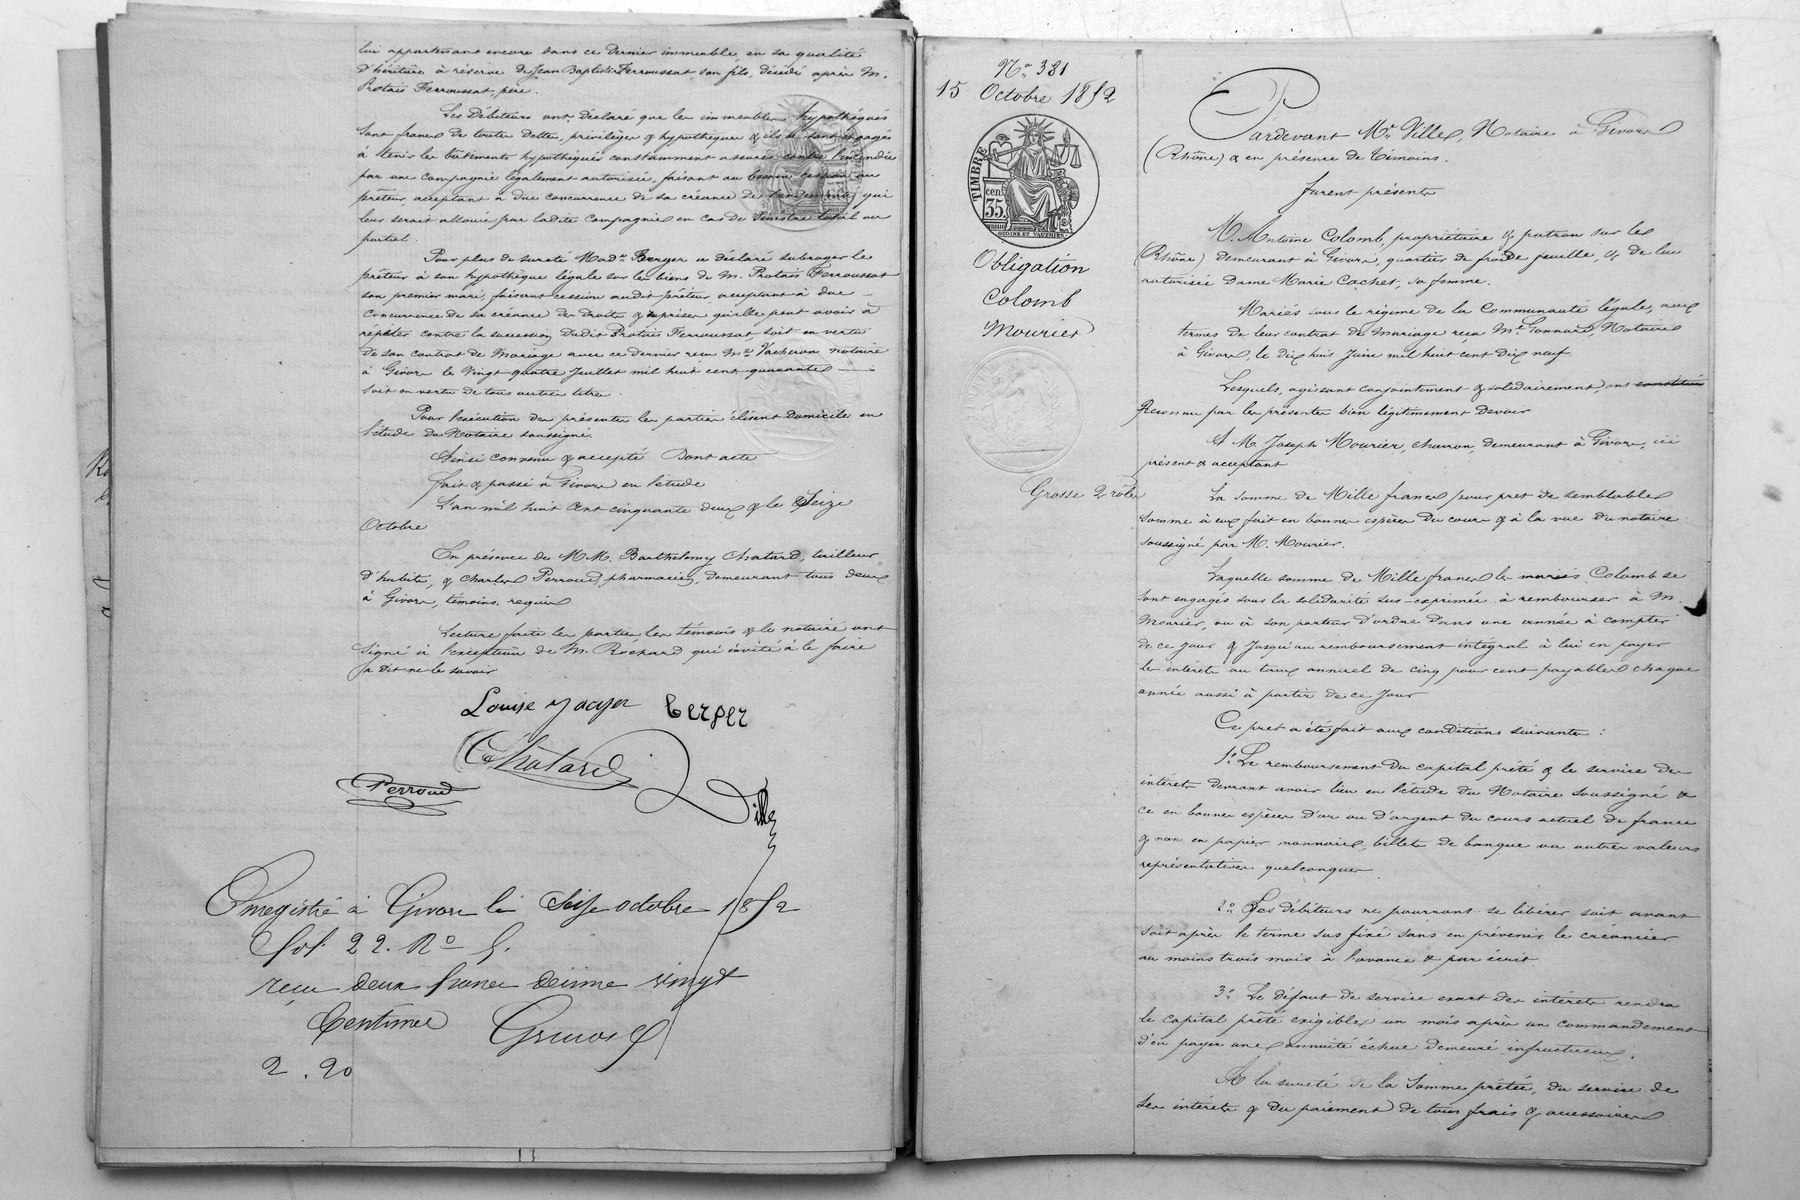 lui appartenant encore dans ce dernier immeuble, en sa qualité
d'héritière à réserve de Jean Baptiste Ferroussat, son fils, décédé après M.
Protais Ferroussat, père.
Les Débiteurs ont déclaré que les immeubles hypothéqués
sont francs de toutes dettes, privilèges & hypothèques & ils se sont engagés
à tenir les bâtiments hypothéqués constamment assurés contre l'incendie
par une compagnie légalement autorisée, faisant au besoin cession au
prêteur acceptant à due concurrence de sa créance de l'indemnité qui
leur serait allouée par ladite Compagnie en cas de Sinistre total ou
partiel.
Pour plus de sureté Made. Berger a déclaré subroger le
prêteur à son hypothèque légale sur les biens de M. Protais Ferroussat
son premier mari, faisant cession audit prêteur acceptant à due
concurrence de sa créance des droits & reprises qu'elle peut avoir à
répéter contre la succession dudit Protais Ferroussat, soit en vertu
de son contrat de Mariage avec ce dernier reçu Me. Vacheron notaire
à Givors le Vingt quatre Juillet mil huit cent quarante
soit en vertu de tous autres titres.
Pour l'exécution des présentes les parties élisent domicile en
l'étude du Notaire soussigné.
Ainsi convenu & accepté Dont acte
fait & passé à Givors en l'étude
L'an mil huit cent cinquante deux & le Seize
Octobre
En présence de MM. Barthelemy Chatard, tailleur
d'habits, & Charles Perroud, pharmacien, demeurant tous deux
à Givors, témoins requis
Lecture faite les parties, les témoins & le notaire ont
signé à l'exception de M. Rochard qui invité à le faire
a dit ne le savoir
Louise berger
Chatard
Perroud
Ville
Enregistré à Givors le Seize octobre 1852
fol. 22. No 5.
reçu deux francs décime vingt
Centimes
2.20
No. 381
15 Octobre 1852
TIMBRE
cen.
35
OUDINE ET VAUTHIER
Obligation
Colomb
Mourier
Grosse 2 rôles
Pardevant Me. Ville, Notaire à Givors
(Rhône) & en présence de témoins.
furent présents
M. Antoine Colomb, propriétaire & patron sur les
(Rhône) demeurant à Givors, quartier de froide feuille, & de lui
autorisée Dame Marie Cachet, sa femme.
Mariés sous le régime de la Communauté légale, aux
termes de leur contrat de mariage reçu Me. Gonnard, Notaire
à Givors, le dix huit Juin mil huit cent dix neuf.
Lesquels, agissant conjointement & solidairement, ont constitué
Reconnu par les présentes bien légitimement devoir
A M. Joseph Mourier, charron, demeurant à Givors, ici
présent & acceptant
La somme de Mille francs pour prêt de semblable
somme à eux fait en bonnes espèces du cours & à la vue du notaire
soussigné par M. Mourier.
Laquelle somme de Mille francs les mariés Colomb se
sont engagés sous la solidarité sus-exprimée à rembourser à M.
Mourier, ou à son porteur d'ordre dans une année à compter
de ce jour & jusqu'au remboursement intégral à lui en payer
le intérêts au taux annuel de cinq pour cent payables chaque
année aussi à partir de ce jour
Ce prêt a été fait aux conditions suivantes :
1o. Le remboursement du capital prêté & le service des
intérêts devront avoir lieu en l'étude du Notaire soussigné &
ce en bonnes espèces d'or ou d'argent du cours actuel de france
& non en papier monnaie, billets de banque ou autres valeurs
représentatives quelconques.
2o. Les débiteurs ne pourront se libérer soit avant
soit après le terme sus fixé sans en prévenir le créancier
au moins trois mois à l'avance & par écrit.
3o. Le défaut de service exact des intérêts rendra
le capital prêté exigible un mois après un commandement
d'en payer une annuité échue demeuré infructueux.
A la sureté de la somme prêtée, du service de
ses intérêts & du paiement de tous frais & accessoires